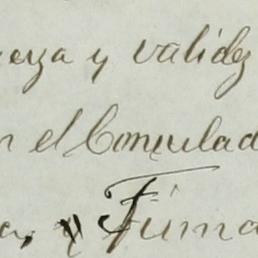 erza y validez
n el Consulad
a, y Firma